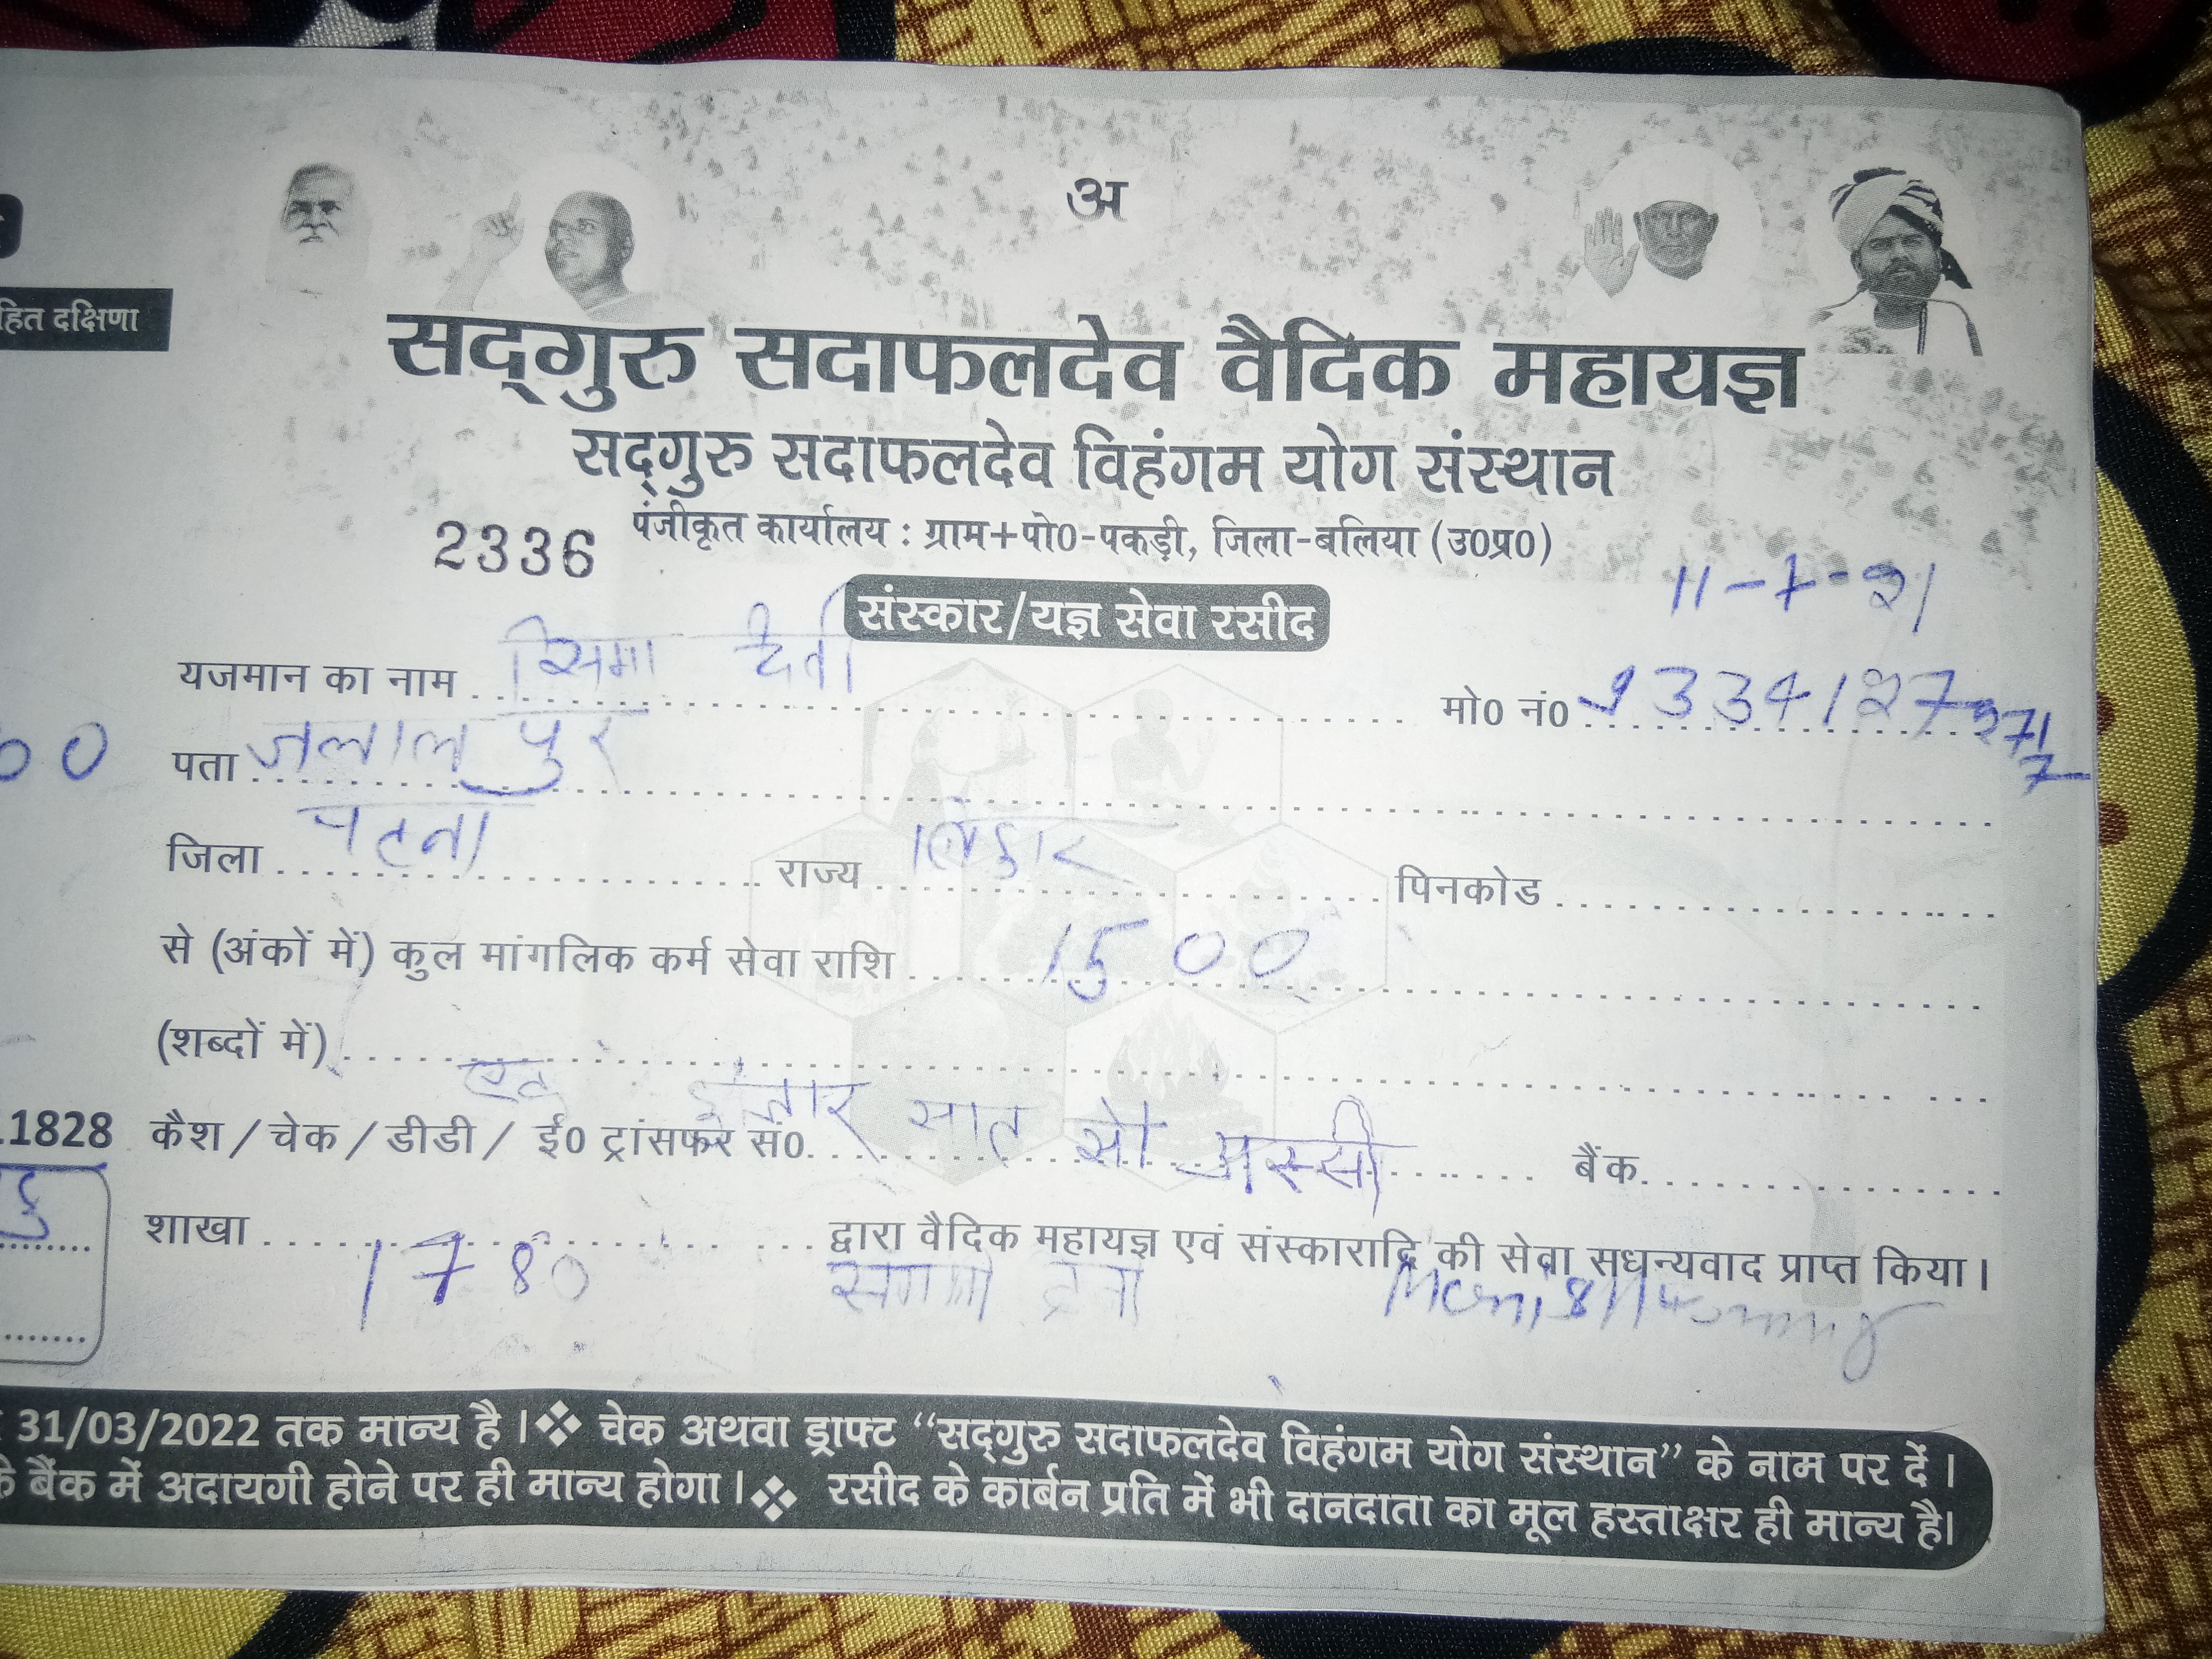 अ
हित दक्षिणा
सद्गुरु सदाफलदेव वैदिक महायज्ञ
सद्गुरु सदाफलदेव विहंगम योग संस्थान
पंजीकृत कार्यालय : ग्राम+पो0-पकड़ी, जिला-बलिया (उ0प्र0)
2336
11-7-21
संस्कार/यज्ञ सेवा रसीद
यजमान का नाम देवी मो0 नं0
00 पता जलालपुर
जिला पटना राज्य बिहार पिनकोड
से (अंकों में) कुल मांगलिक कर्म सेवा राशि 1500
(शब्दों में)
एक हजार सात सौ अस्सी
.1828 कैश / चेक / डीडी / ई0 ट्रांसफर सं0. बैंक
शाखा द्वारा वैदिक महायज्ञ एवं संस्कारादि की सेवा सधन्यवाद प्राप्त किया।
1780
31/03/2022 तक मान्य है। ❖ चेक अथवा ड्राफ्ट “सद्गुरु सदाफलदेव विहंगम योग संस्थान” के नाम पर दें।
बैंक में अदायगी होने पर ही मान्य होगा। ❖ रसीद के कार्बन प्रति में भी दानदाता का मूल हस्ताक्षर ही मान्य है।